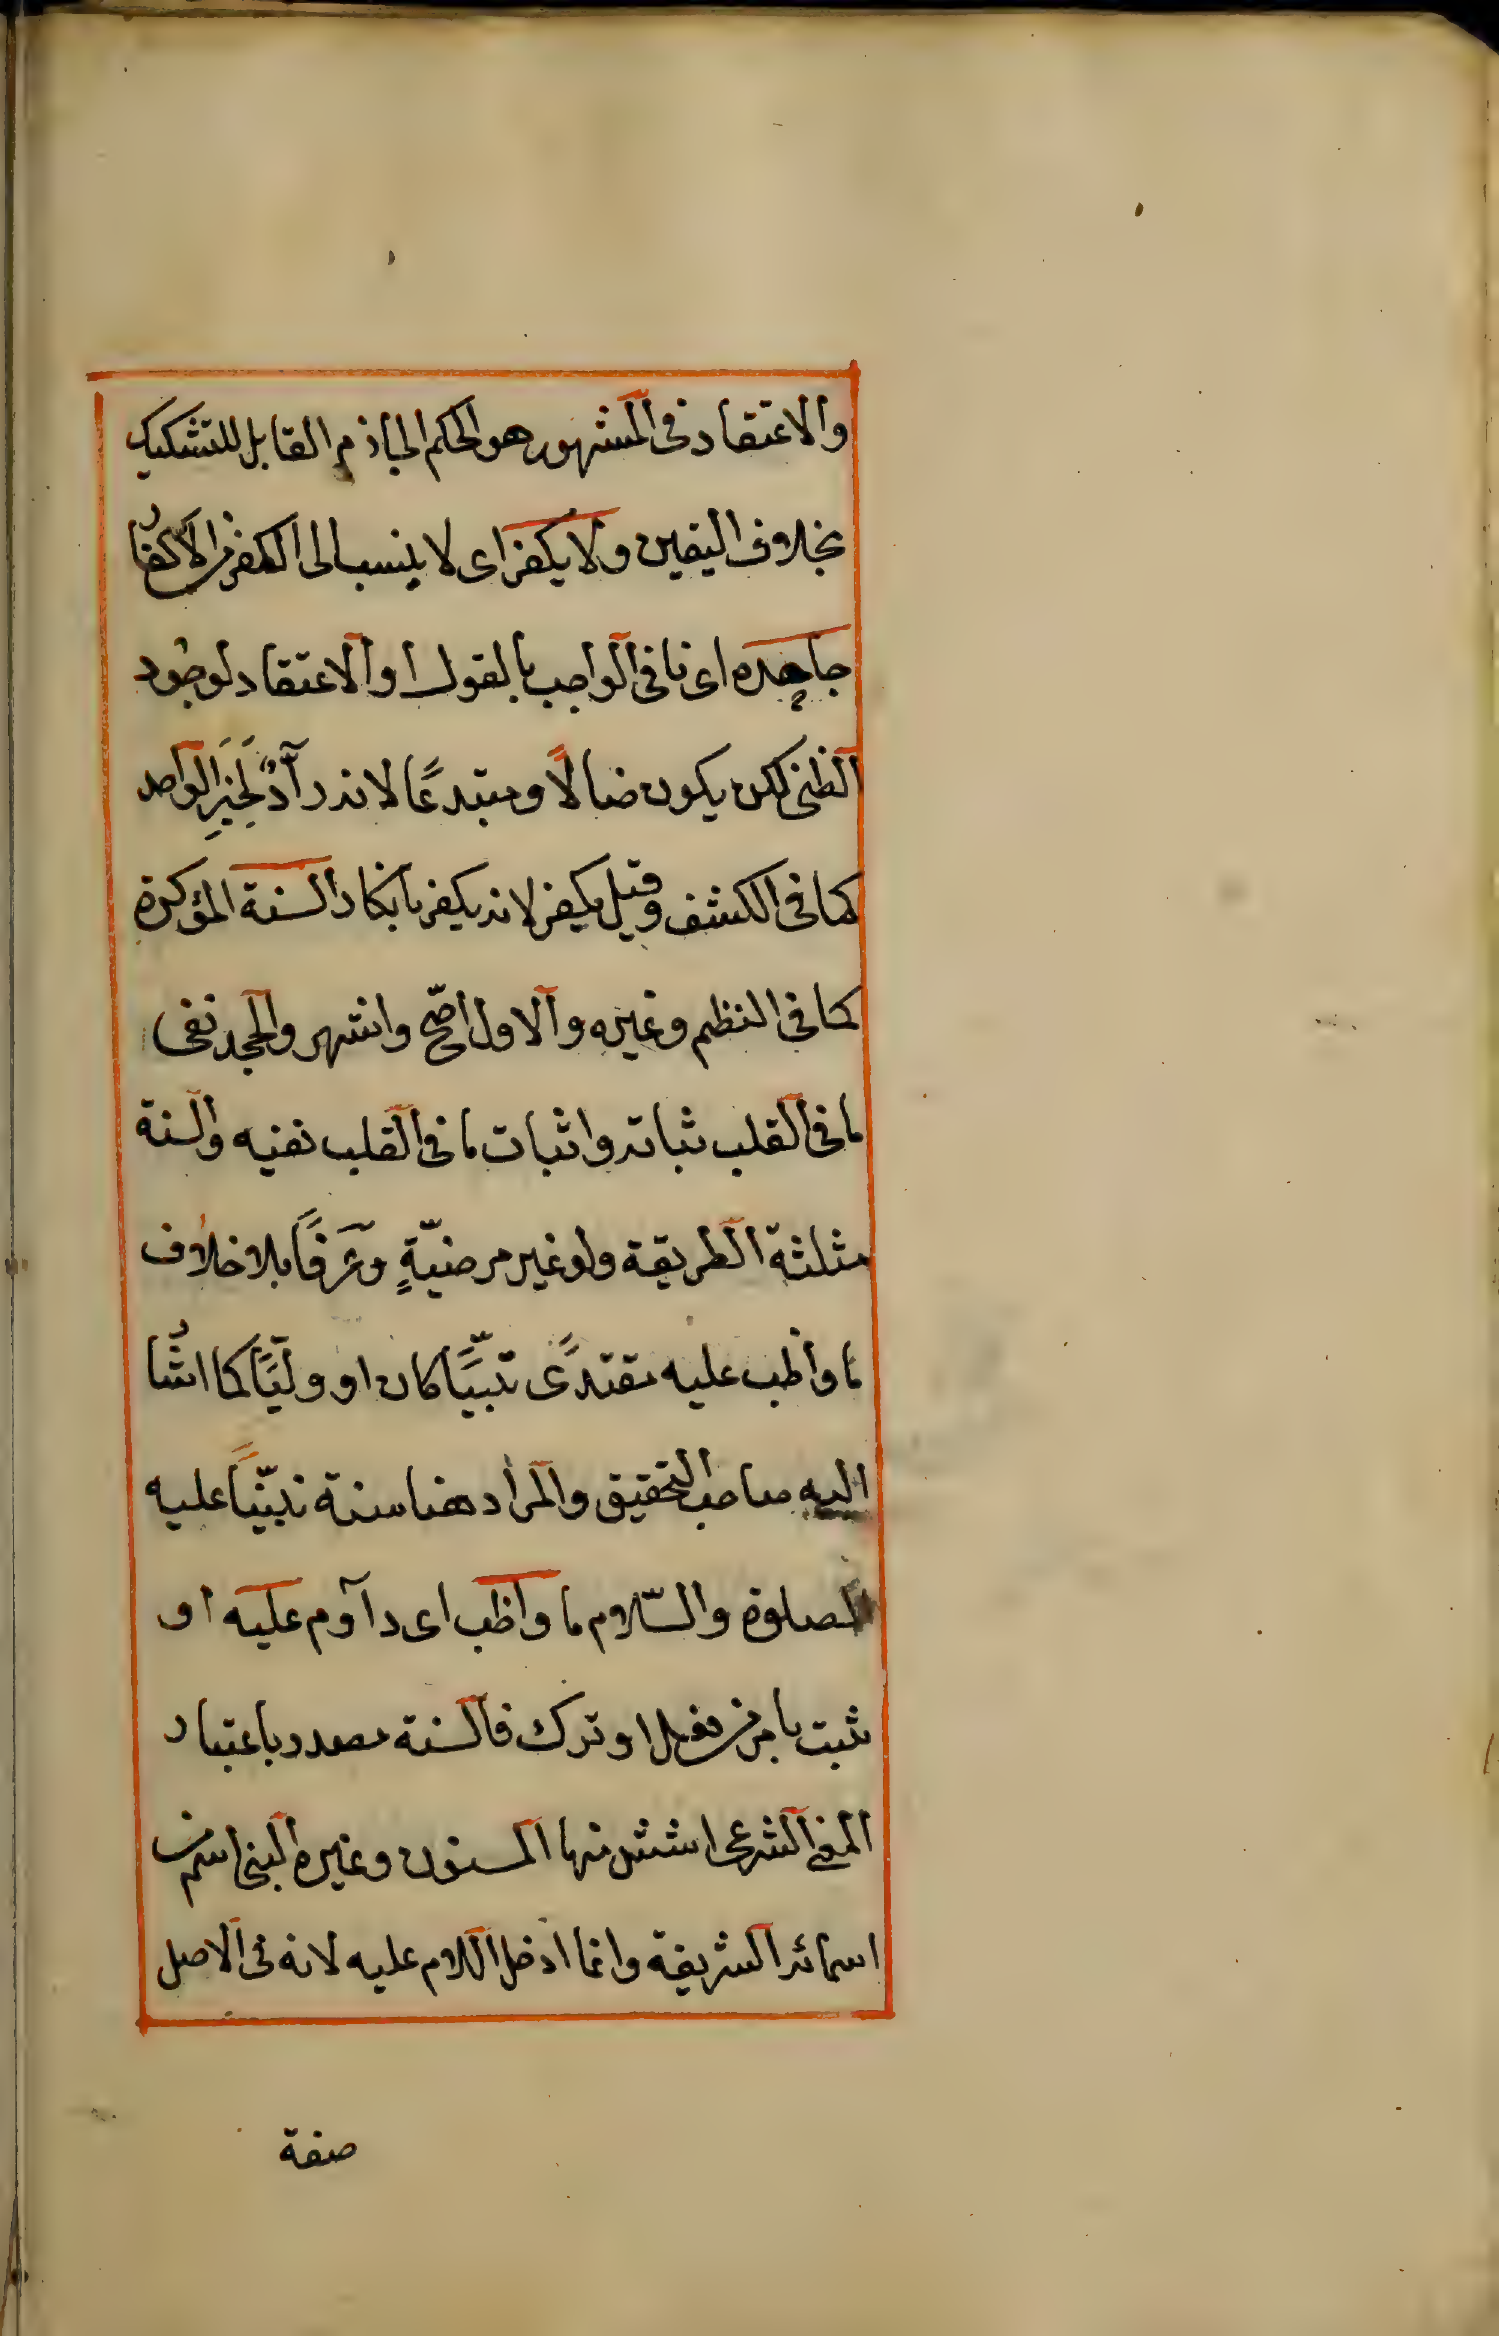 والاعتقاد فى المشهور هو الحكم الجازم القابل للتشكيك
بخلاف اليقين ولا يكفر اى لا ينسب الى الكفر من الاكفار
جاحده اى نافى الواجب بالقول او الاعتقاد لوجود
الظنى لكن يكون ضالاً ومبتدعًا لانه رادٌّ لخبرِ الواحد
كما فى الكشف وقيل يكفر لانه يكفر بانكار السنة المؤكدة
كما فى النظم وغيره والاول اصّح واشهر والجحد نفى
ما فى القلب ثباته واثبات ما فى القلب نفيه والسنة
مثلثة الطريقة ولو غير مرضيّةٍ وعرفًا بلا خلاف
ما واظب عليه مقتدًى نبيًّا كان او وليًّا كما اشار
اليه صاحب التحقيق والمراد هنا سنة نبيّنا عليه
الصلوة والسّلام ما واظب اى داوم عليه او
ثبت بامر من فعل او ترك فالسنة مصدر باعتبار
المعنى الشرعى اشتق منها المسنون وغيره النبى اسم من
اسمائه الشريفة وانما ادخل اللام عليه لانه فى الاصل
صفة